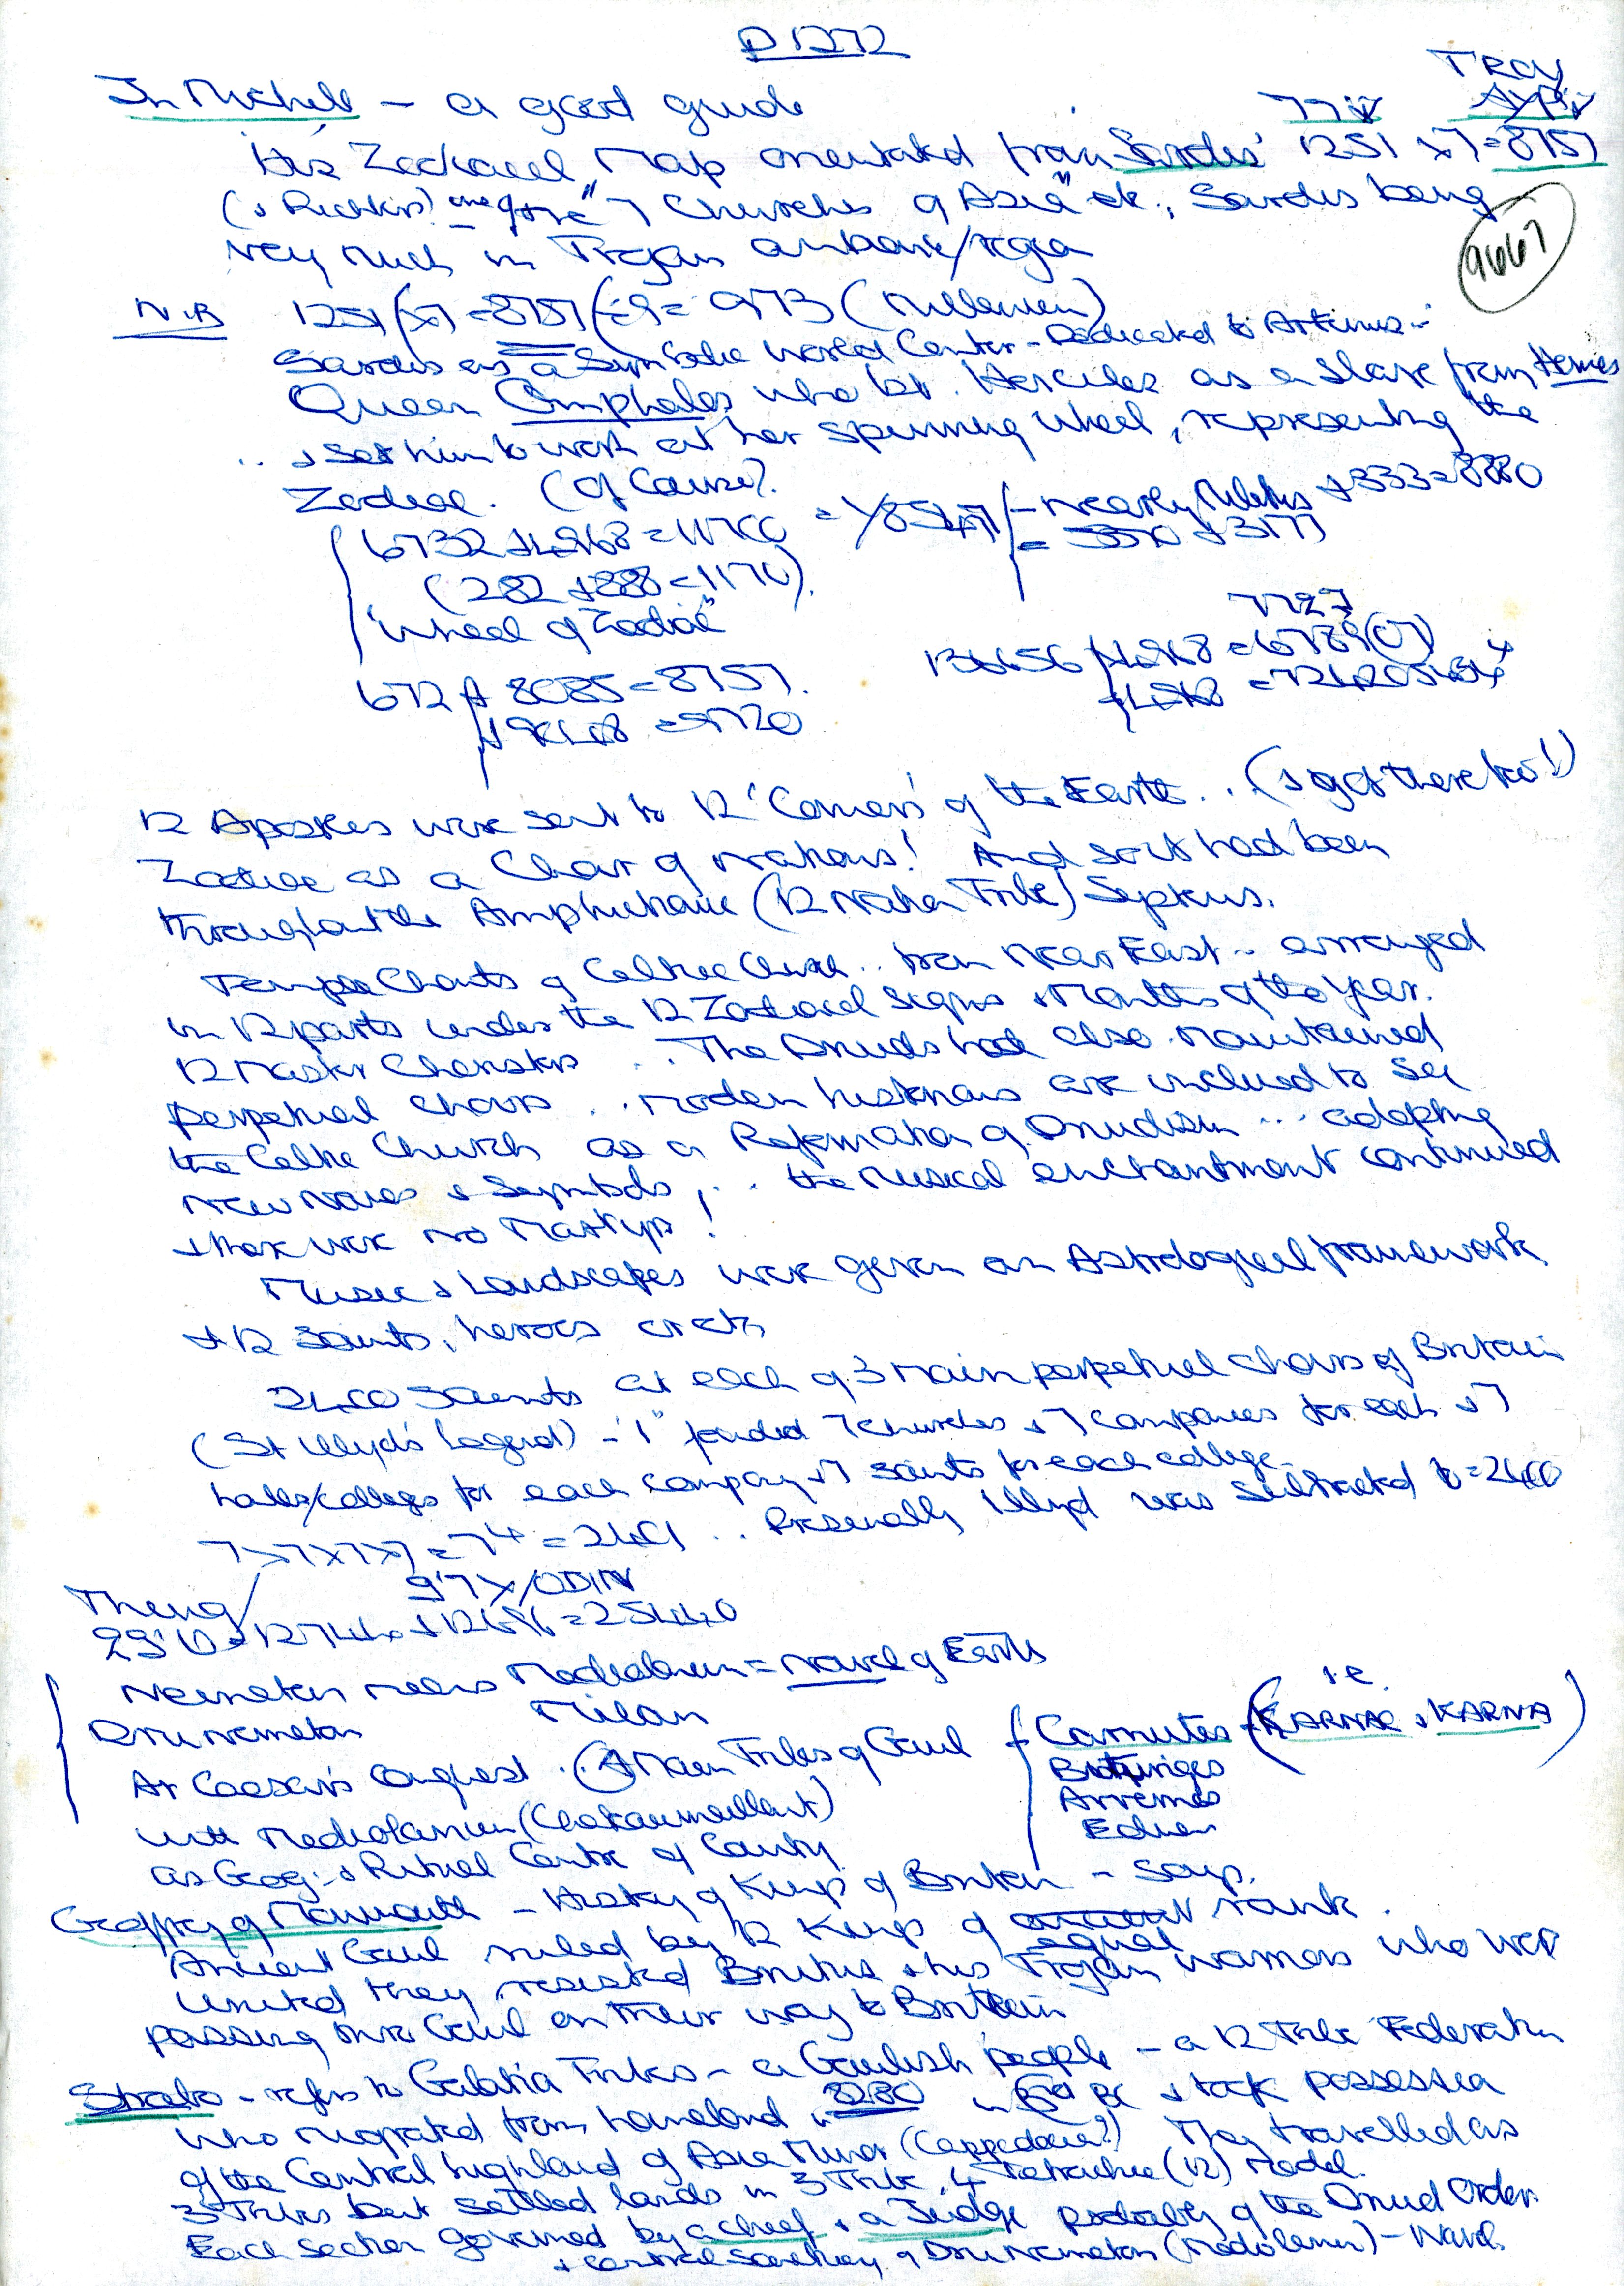 D 1272
TROY
Jn Michell - a good guide
His Zodiacal Map orientated from Sardis' 1251 x 7 = 8757
(& Richters) one of the "7 Churches of Asia" etc, Sardis being
very much in Trojan ambank/region
9667
N.B 1251 (x7 = 8757 (÷9 = 973 (Millenium)
Sardis as a Symbolic World Center - Dedicated to Artemis -
Queen Omphales who bt. Hercules as a slave from Hermes
.. & set him to work at her spinning wheel, representing the
Zodiac. (Of Course?
6732 + 4968 = 11700
(282 + 888 = 1170)
"Wheel of Zodiac"
672 + 8085 = 8757.
12 Apostles were sent to 12 'Corners' of the Earth .. (& got there too!)
Zodiac as a Choir of Nations! And so it had been
throughout the Amphictionic (12 Nation Tribe) Systems.
Temple Chants of Celtic Church .. from Near East - arranged
in 12 parts under the 12 Zodiacal signs & Months of the Year.
12 Master Choristers .. The Druids had also maintained
perpetual choirs .. modern historians are inclined to see
the Celtic Church as a Reformation of Druidism ... adopting
new names & symbols, .. the musical enchantment continued
& there were no Martyrs!
Music & Landscapes were given an Astrological framework
+ 12 Saints, heroes etc
2400 Saints at each of 3 main perpetual choirs of Britain
(St Illtyd's Legend) - 'I' founded 7 churches & 7 companies for each & 7
halls/colleges for each company & 7 saints for each college.
7x7x7x7 = 7⁴ = 2401 .. Presumably Illtyd was subtracted to = 2400
9'7 x/ODIN
12744 + 12696 = 25440
Nemeton means Mediolanum = Navel of Earth
Drunemeton Milan
At Caesar's conquest .. 4 Main Tribes of Gaul { Carnutes - i.e. (KARNAC & KARNA)
Bituriges
Arvernes
Eduen
with Mediolanum (Chateaumeillant)
as Geog: & Ritual Centre of County
Geoffrey of Monmouth - History of Kings of Britain - says.
Ancient Gaul ruled by 12 Kings of equal rank.
United they resisted Brutus & his Trojan warriors who were
passing thro Gaul on their way to Britain
Strabo - refers to Galatia Tribes - a Gaulish people - a 12 Tribe Federation
who migrated from homeland in 3280 in BC & took possession
of the Central highland of Asia Minor (Cappedocia?) They travelled as
3 Tribes but settled lands in 3 Tribe, 4 Tetrachie (12) model.
Each section governed by a chief & a Judge probably of the Druid Order.
& central sanctuary of Drunemeton (Mediolanum) - Navel.